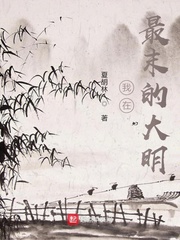 我在
最末的大明
夏胡林
著